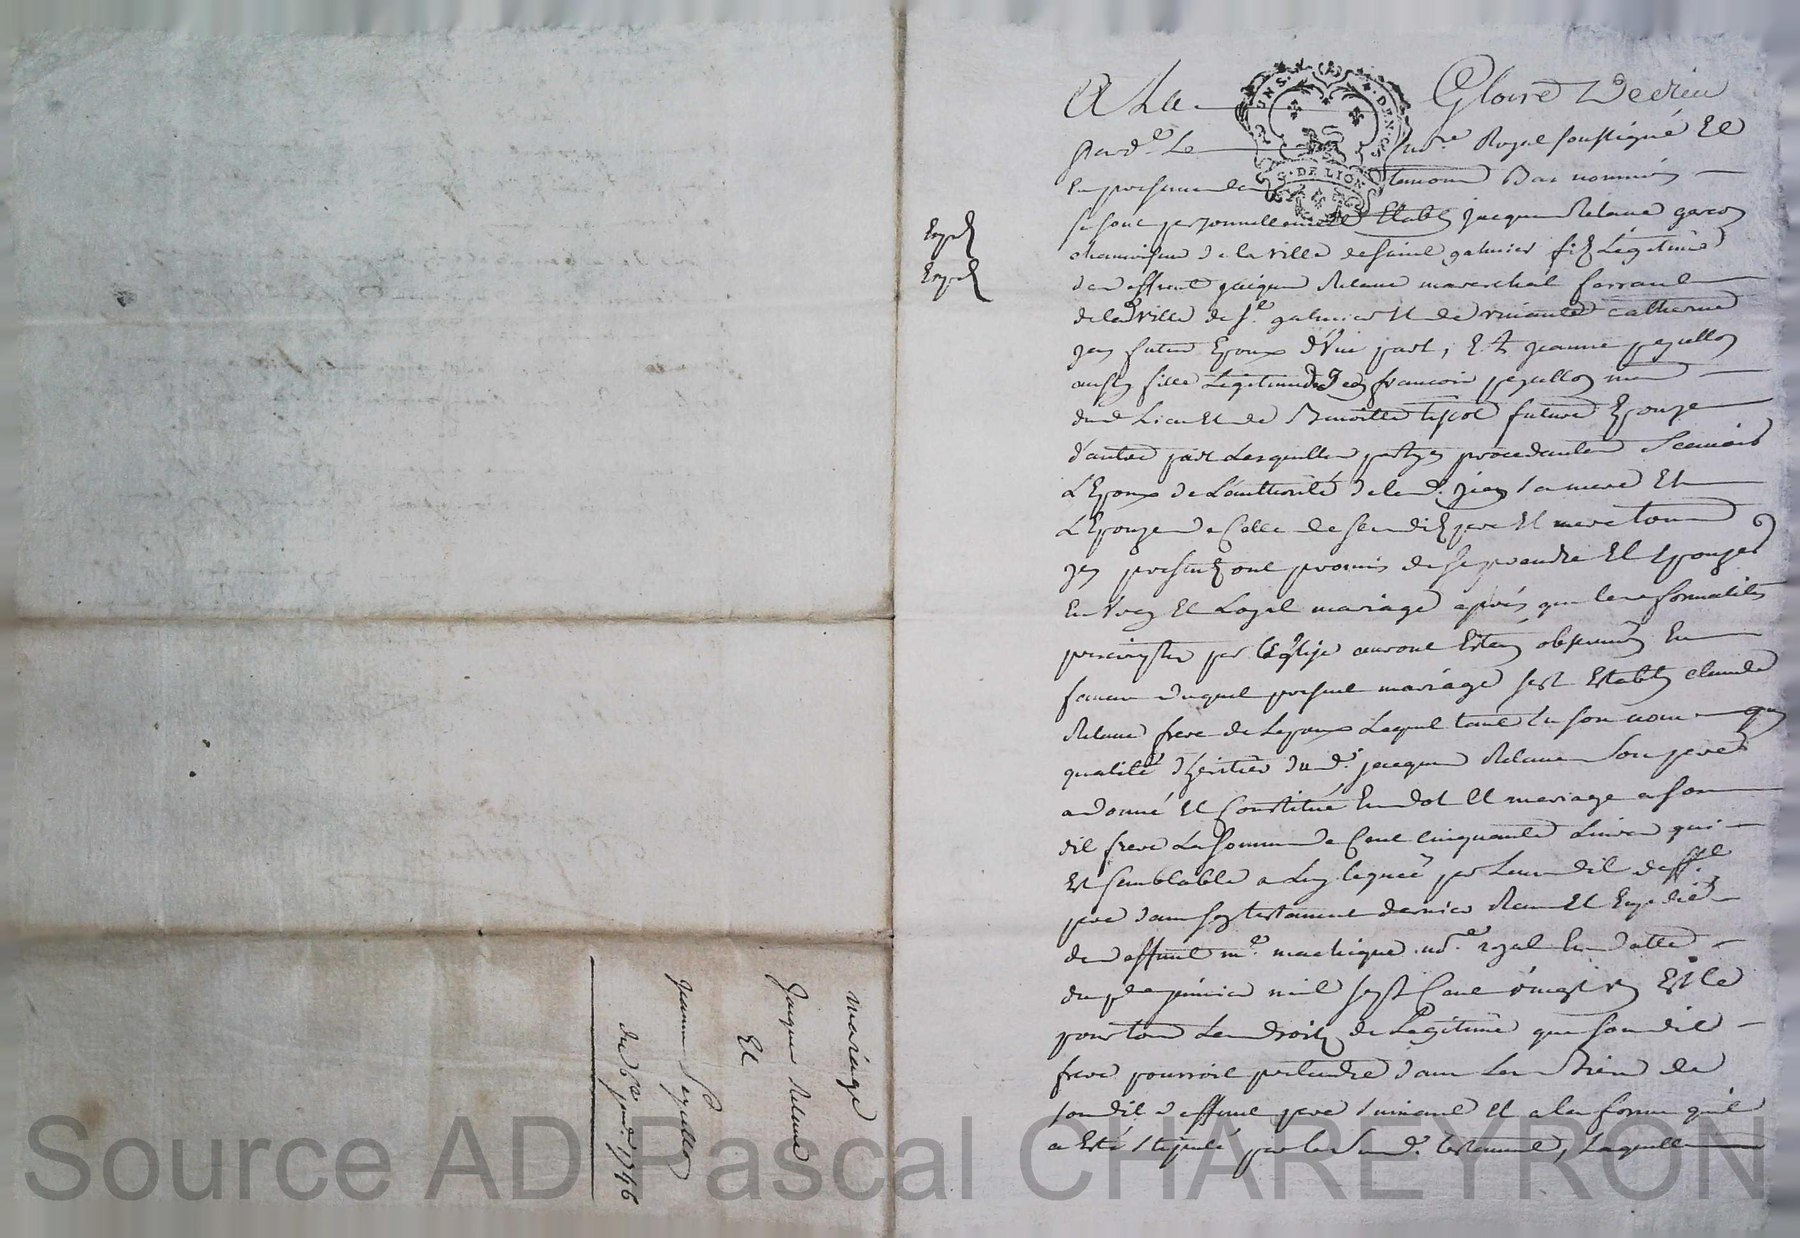 A La Gloire De dieu
pard.t Le no.re Royal soussigné Et
En presence des temoins Bas nommés
se sont personnellement Etably jacques Relave garçon
chanvreur de la ville de saint galmier fils Legitime
de deffunt jacques Relave mareschal ferrant
de lad. ville de St. galmier Et de vivante catherine
jay futur Epoux d'Une part, Et jeanne peyuellon
aussy fille Legitime de françois peyuellon
dud Lieu Et de Benoitte future Epouze
d'autre part Lesquelles partyes procedantes Scavoir
L'Epoux de L'authorité de lad. jay sa mere Et
L'Epouze de Celle de sesdits pere Et mere tous
jcy presents ont promis de se prendre Et Epouzer
En vray Et Loyal mariage après que les formalités
prescriptes par l'Eglize auront Estes observées En
faveur duquel present mariage sest Etably claude
Relave frere de Lepoux Lequel tant En son nom que
qualité d'heritier dud. jacques Relave son pere
a donné Et Constitué En dot Et mariage a son
dit frere La somme de Cent cinquante Livres qui
Est semblable a Luy leguée par Leurdit deff.t
pere dans son testament dernier Receu Et Expedié
de deffunt m.e no.re royal En datte
du janvier mil sept Cent vingt Et Ce
pour tous Les droits de Legitime que sondit
frere pourroit pretendre dans Les Biens de
sondit deffunt pere suivant Et a la forme qu'il
a Esté stipulé par le susd. testament, Laquelle
Exped
Exped
mariage
Jacques Relave
Et
jeanne Peyuellon
du janv. 1746
INS. DEN. CS
G. DE LION
Source AD Pascal CHAREYRON